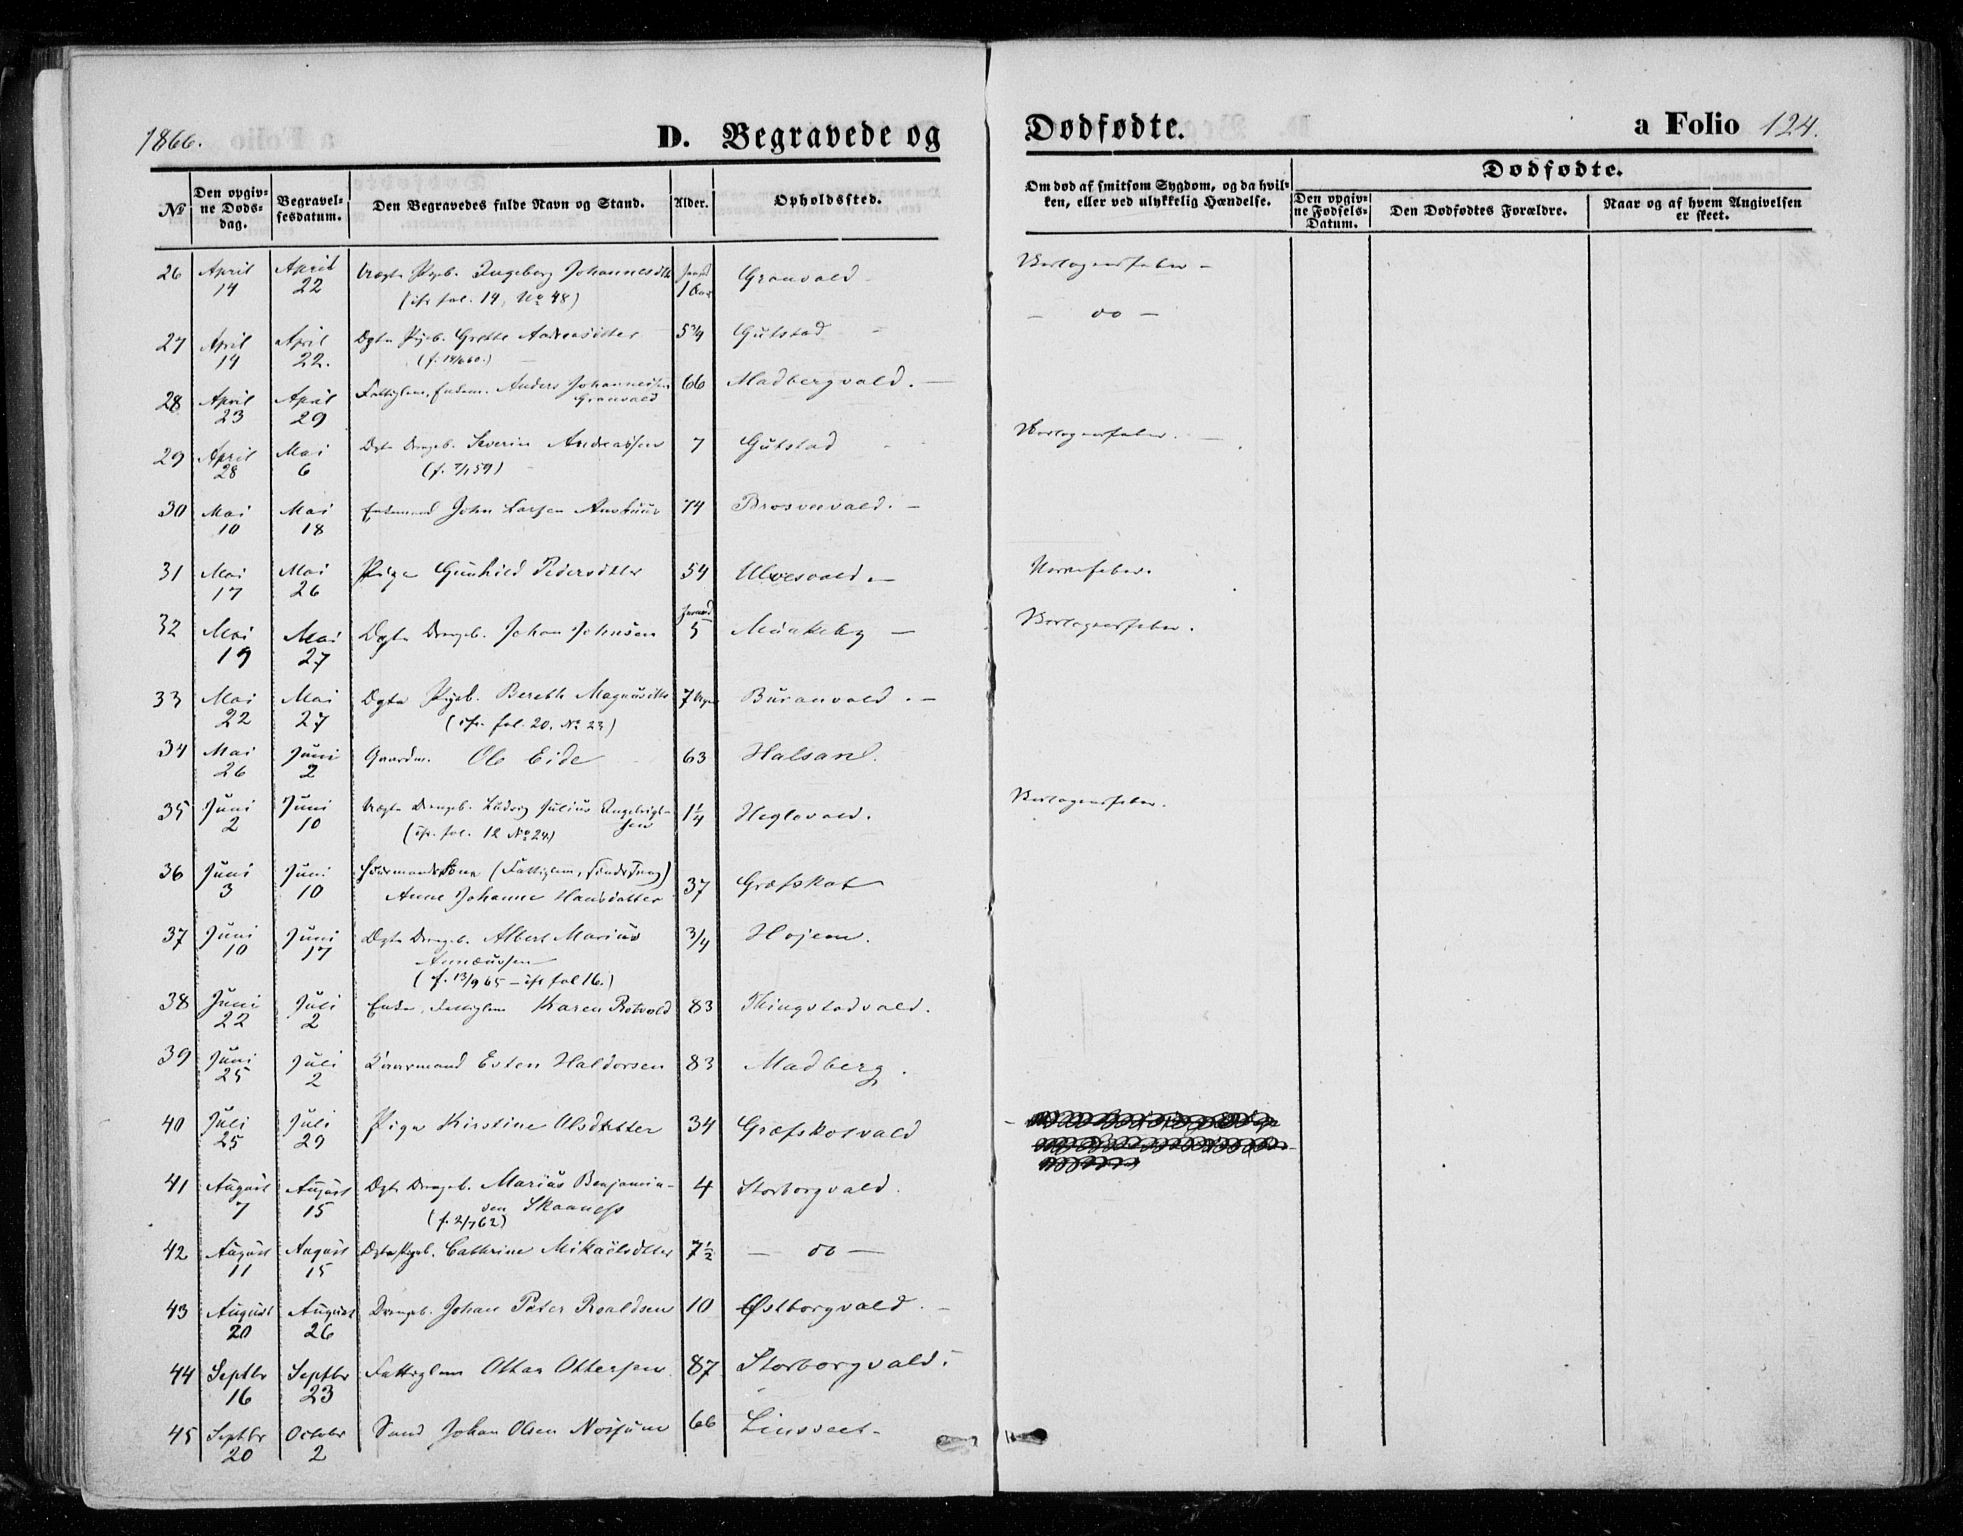 1866.
D. Begravede og Dødfødte.
a Folio 124.
No
Den opgivne Døds-dag.
Begravelsesdatum.
Den Begravedes fulde Navn og Stand.
Alder.
Opholdssted.
Om død af smitsom Sygdom, og da hvilken, eller ved ulykkelig Hændelse.
Dødfødte.
Den opgivne Fødsels-Datum.
Den Dødfødtes Forældre.
Naar og af hvem Angivelsen er skeet.
26 April 14 April 22 Pigeb. Ingeborg Johannesdtr 1 Granvald -
(cfr fol. 14, No 48)
27 April 14 April 22. Dgtn Pigeb. Grethe Andreasdtter 5¾ Gutstad - - do -
(f. 14/6 60.)
28 April 23 April 29 Fattiglem, Enkem. Anders Johannessen 66 Madbergvald. -
Granvald
29 April 28 Mai 6 Dgtn Drengeb. Severin Andreassen 7 Gutstad
(f. 7/1 59)
30 Mai 10 Mai 18 Enkemand John Larsen 74 -
31 Mai 17 Mai 26 Pige Gunhild Pedersdtter 54 Ulvesvald. - Nervefeber.
32 Mai 19 Mai 27 Dgtn Drengeb. Johan Johnsen 5 Munkeby -
33 Mai 22 Mai 27 Dgtn Pigeb. Bereth Magnusdtter 7 Uger Buranvald. -
(cfr. fol. 20. No 23)
34 Mai 26 Juni 2 Gaardm. Ole Eide 63 Halsan.
35 Juni 2 Juni 10 Drengeb. Ludvig Julius Ingebrigt-sen 1¼ Heglovald.
(cfr. fol. 12 No 24.)
36 Juni 3 Juni 10 (Fattiglem,
Anne Johanna Hansdatter 37 Græfskot
37 Juni 10 Juni 17 Dgtn Drengeb. Albert Marius ¾ Hojem.
Annæussen
(f. 13/9 65 - cfr fol 16.)
38 Juni 22 Juli 2 Enke, Fattiglem Karen Rotvold 83 Thingstadvald.
39 Juni 25 Juli 2 Kaarmand Esten Haldorsen 83 Madberg.
40 Juli 25 Juli 29 Pige Kirstine Olsdatter 34 Græfskotvald -
41 August 7 August 15 Dgtn Drengeb. Marius Benjamin-sen Skaanes 4 Storborgvald.
(f. 2/7 62)
42 August 11 August 15 Dgtn Pigeb. Cathrine Mikaelsdtter 7½ - do -
43 August 20 August 26 Drengeb. Johan Peter Roaldsen 10 Østborgvald. -
44 Septbr 16 Septbr 23 Fattiglem Ottar Ottersen 87 Storborgvald.
45 Septbr 20 October 2 Johan Olsen 66